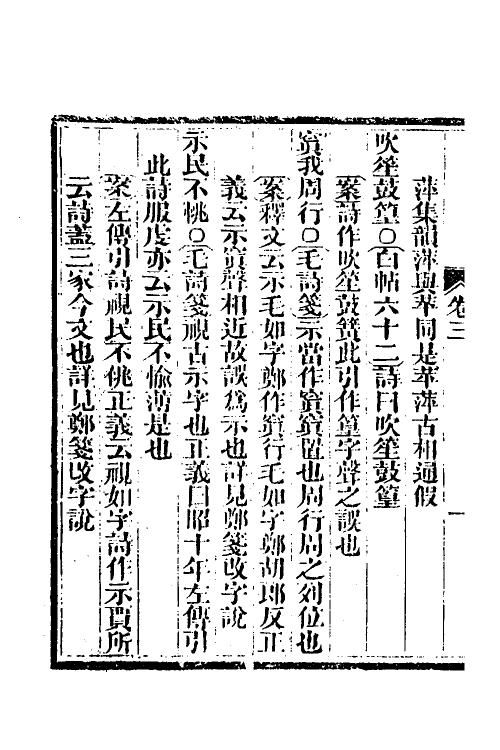 卷三
一
萍集韻萍與苹同是苹萍古相通假
吹笙鼓篁○白帖六十二詩曰吹笙鼓篁
案詩作吹笙鼓簧此引作篁字聲之誤也
寘我周行○毛詩箋示當作寘寘置也周行周之列位也
案釋文云示毛如字鄭作寘行毛如字鄭胡郎反正
義云示寘聲相近故誤爲示也詳見鄭箋改字說
示民不恌○毛詩箋視古示字也正義曰昭十年左傳引
此詩服虔亦云示民不愉薄是也
案左傳引詩視民不佻正義云視如字詩作示賈所
云詩蓋三家今文也詳見鄭箋改字說